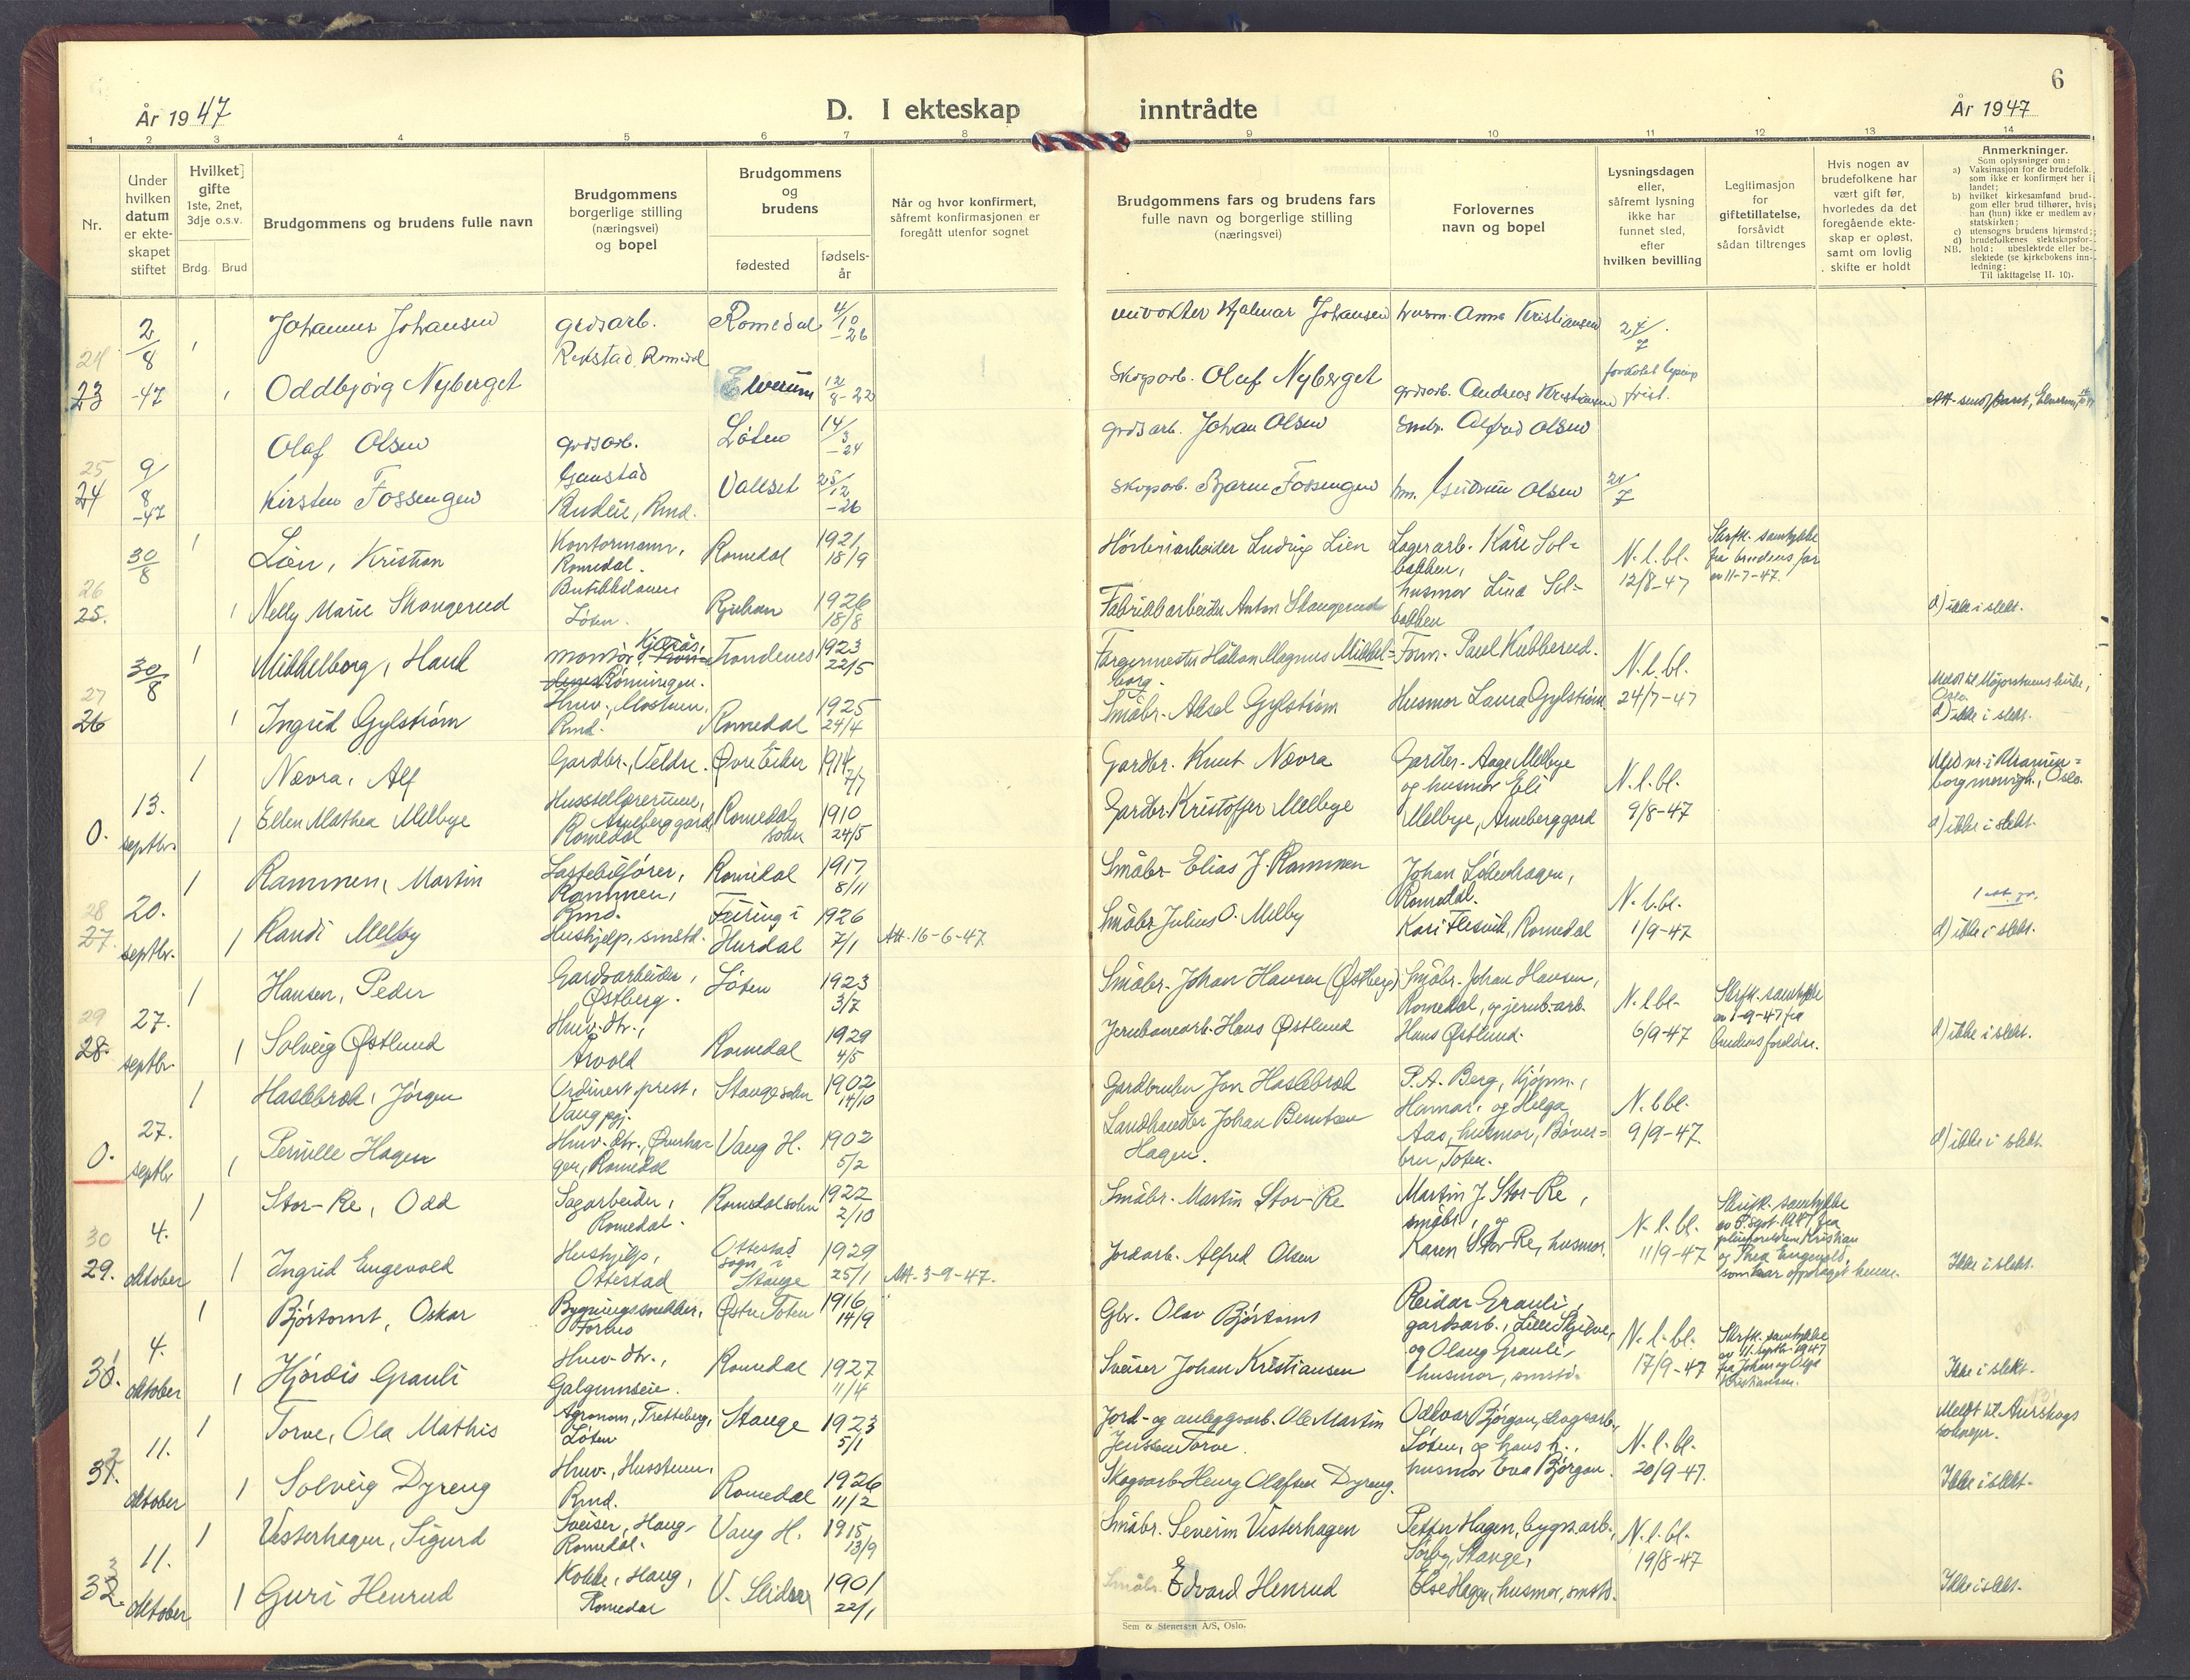 6
År 1947
D. I ekteskap inntrådte
År 1947
1 2 3 4 5 6 7 8 9 10 11 12 13 14
Nr.
Under hvilken datum er ekteskapet stiftet
Hvilket gifte 1ste, 2net, 3dje o.s.v.
Brdg. Brud
Brudgommens og brudens fulle navn
Brudgommens borgerlige stilling (næringsvei) og bopel
Brudgommens og brudens
fødested
fødselsår
Når og hvor konfirmert, såfremt konfirmasjonen er foregått utenfor sognet
Brudgommens fars og brudens fars fulle navn og borgerlige stilling (næringsvei)
Forlovernes navn og bopel
Lysningsdagen eller, såfremt lysning ikke har funnet sted, efter hvilken bevilling
Legitimasjon for giftetillatelse, forsåvidt sådan tiltrenges
Hvis nogen av brudefolkene har vært gift før, hvorledes da det foregående ekteskap er opløst, samt om lovlig skifte er holdt
Anmerkninger.
Som oplysninger om:
a) Vaksinasjon for de brudefolk, som ikke er konfirmert her i landet;
b) hvilket kirkesamfund brudgom eller brud tilhører, hvis han (hun) ikke er medlem av statskirken;
c) utensogns brudens hjemsted;
d) brudefolkenes slektskapsforhold: ubeslektede eller beslektede (se kirkebokens innledning:
NB.
Til iakttagelse II. 10).
24 23 2/8 -47
1 Johannes Johansen gårdsarb. Rekstad, Romedal Romedal 4/10 -26 Hjalmar Johansen husm. Anna Kristiansen 24/7
1 Oddbjørg Nyberget Elverum 12/8-22 Skogsarb. Oluf Nyberget grdsarb. Andreas Kristiansen frist. Att. sendt
25 24 9/8 -47
Olaf Olsen grdsarb. Gaustad Løten 14/3 -24 grdsarb. Johan Olsen Småbr. Alfred Olsen
Kirsten Fossengen Rmd. Vallset 25/12 -26 Skogsarb. Bjarne Fossengen hm. Gudrun Olsen 21/7
26 25. 30/8
1 Lien, Kristian Kontormann, Romedal. Romedal 1921 18/9 Ludvig Lien Lagerarb. Kåre Solbakken, N.l.bl. 12/8-47 Skrftl. samtykke fra brudens far av 11-7-47.
1 Nelly Marie Skaugerud Butikkdame Løten. Rjukan 1926 18/8 Fabrikkarbeider Anton Skaugerud husmor Lina Solbakken d) ikke i slekt.
27 26 30/8
1 Mikkelborg, Hauk montør, Kjellås, Rønningen. Trondenes 1923 22/5 Fargermester Håkon Magnus Mikkelborg. Form. Paul Kubberud. N.l.bl. Meldt til Majorstuens kirke, Oslo
1 Ingrid Gylstrøm Husv., Mostuen, Rmd. Romedal 1925 24/4 Småbr. Aksel Gylstrøm Husmor Laura Gylstrøm 24/7-47 d) ikke i slekt.
0. 13. septbr.
1 Nævra, Alf Gardbr., Veldre. Øvre Eiker 1914 7/7 Gardbr. Knut Nævra Gardbr. Aage Melbye og husmor Eli N.l.bl. Uranienborg menigh., Oslo.
1 Ellen Mathea Melbye Husstellærerinne, Arneberg gard, Romedal Romedal sokn 1910 24/5 Gardbr. Kristoffer Melbye Melbye, Arneberg gard 9/8-47 d) ikke i slekt.
28 27. 20. septbr.
1 Rammen, Martin Lastebilfører, Rammen, Rmd. Romedal 1917 8/11 Småbr. Elias J. Rammen Johan Løbenhagen, Romedal. N.l.bl.
1 Randi Melby Hushjelp, smstd. Feiring i Hurdal 1926 7/1 Att. 16-6-47 Småbr. Julius O. Melby Kari Flesvik, Romedal 1/9-47 d) ikke i slekt.
29 28. 27. septbr.
1 Hansen, Peder Gardsarbeider, Østberg. Løten 1923 3/7 Småbr. Johan Hansen (Østberg) Småbr. Johan Hansen, Romedal, og jernb.arb. N.l.bl. Skrftl. samtykke av 1-9-47 fra
1 Solveig Østlund Husv. dtr., Arvold Romedal 1929 4/5 Jernbanearb. Hans Østlund Hans Østlund. 6/9-47 brudens foreldre. d) ikke i slekt.
0. 27. septbr
1 Haslebrok, Jørgen Ordinert prest, Vang pgj. Stange sokn 1902 14/10 Gardbruker Jon Haslebrok P.A. Berg, Kjøpm., Hamar, og Helga N.l.bl.
1 Pernille Hagen Husv. dtr., Øverhagen, Romedal Vang H. 1902 5/2 Landhandler Johan Berntsen Hagen. Aas, husmor, Bøverbru, Toten. 9/9-47. d) ikke i slekt.
30 29. 4. oktober
1 Stor-Re, Odd Sagarbeider, Romedal. Romedal sokn 1922 2/10 Småbr. Martin Stor-Re Martin J. Stor-Re, småbr., og N.l.bl. Skriftl. samtykke av 5. sept. 1947 fra pleieforeldrene Kristian
1 Ingrid Engevold Hushjelp, Ottestad Ottestad sogn i Stange 1929 25/1 Att. 3-9-47. Jordarb. Alfred Olsen Karen Stor-Re, husmor. 11/9-47 og Thea Engevold, som har oppdraget henne. Ikke i slekt.
31. 4. oktober
1 Bjørtomt, Oskar Bygningssnekker, Østre Toten 1916 14/9 Gbr. Olav Bjørtomt Reidar Grauli, gardsarb., Lille Skjelve, N.l.bl. Skrftl. samtykke av 11. septbr. 1947
1 Hjørdis Grauli Husv. dtr., Galgumseie. Romedal 1927 11/4 Sveiser Johan Kristiansen og Olaug Grauli, husmor, smstd. 17/9-47 fra Johan og Olga Kristiansen. Ikke i slekt.
32. 11. oktober
1 Torve, Ola Mathis Agronom, Tretteberg, Løten Stange 1923 5/1 Jord- og anleggsarb. Ole Martin Jenssen Torve. Oddvar Bjørgan, skogsarb., Løten, og hans h., N.l.bl. Meldt til Aurskogs
1 Solveig Dyreng Husv., Husstuen, Rmd. Romedal 1926 11/2 Skogsarb. Henry Olafsen Dyreng. husmor Eva Bjørgan. 20/9-47. Ikke i slekt.
33. 11. oktober
1 Vesterhagen, Sigurd Sveiser, Haug, Romedal. Vang H. 1915 13/9 Småbr. Severin Vesterhagen Petter Hagen, bygn.arb., Sørby, Stange, N.l.bl.
1 Guri Henrud Kokke, Haug, Romedal V. Slidre 1901 22/1 Småbr. Edvard Henrud Else Hagen, husmor, smstd. 19/8-47 Ikke i slekt.
Sem & Stenersen A/S, Oslo.